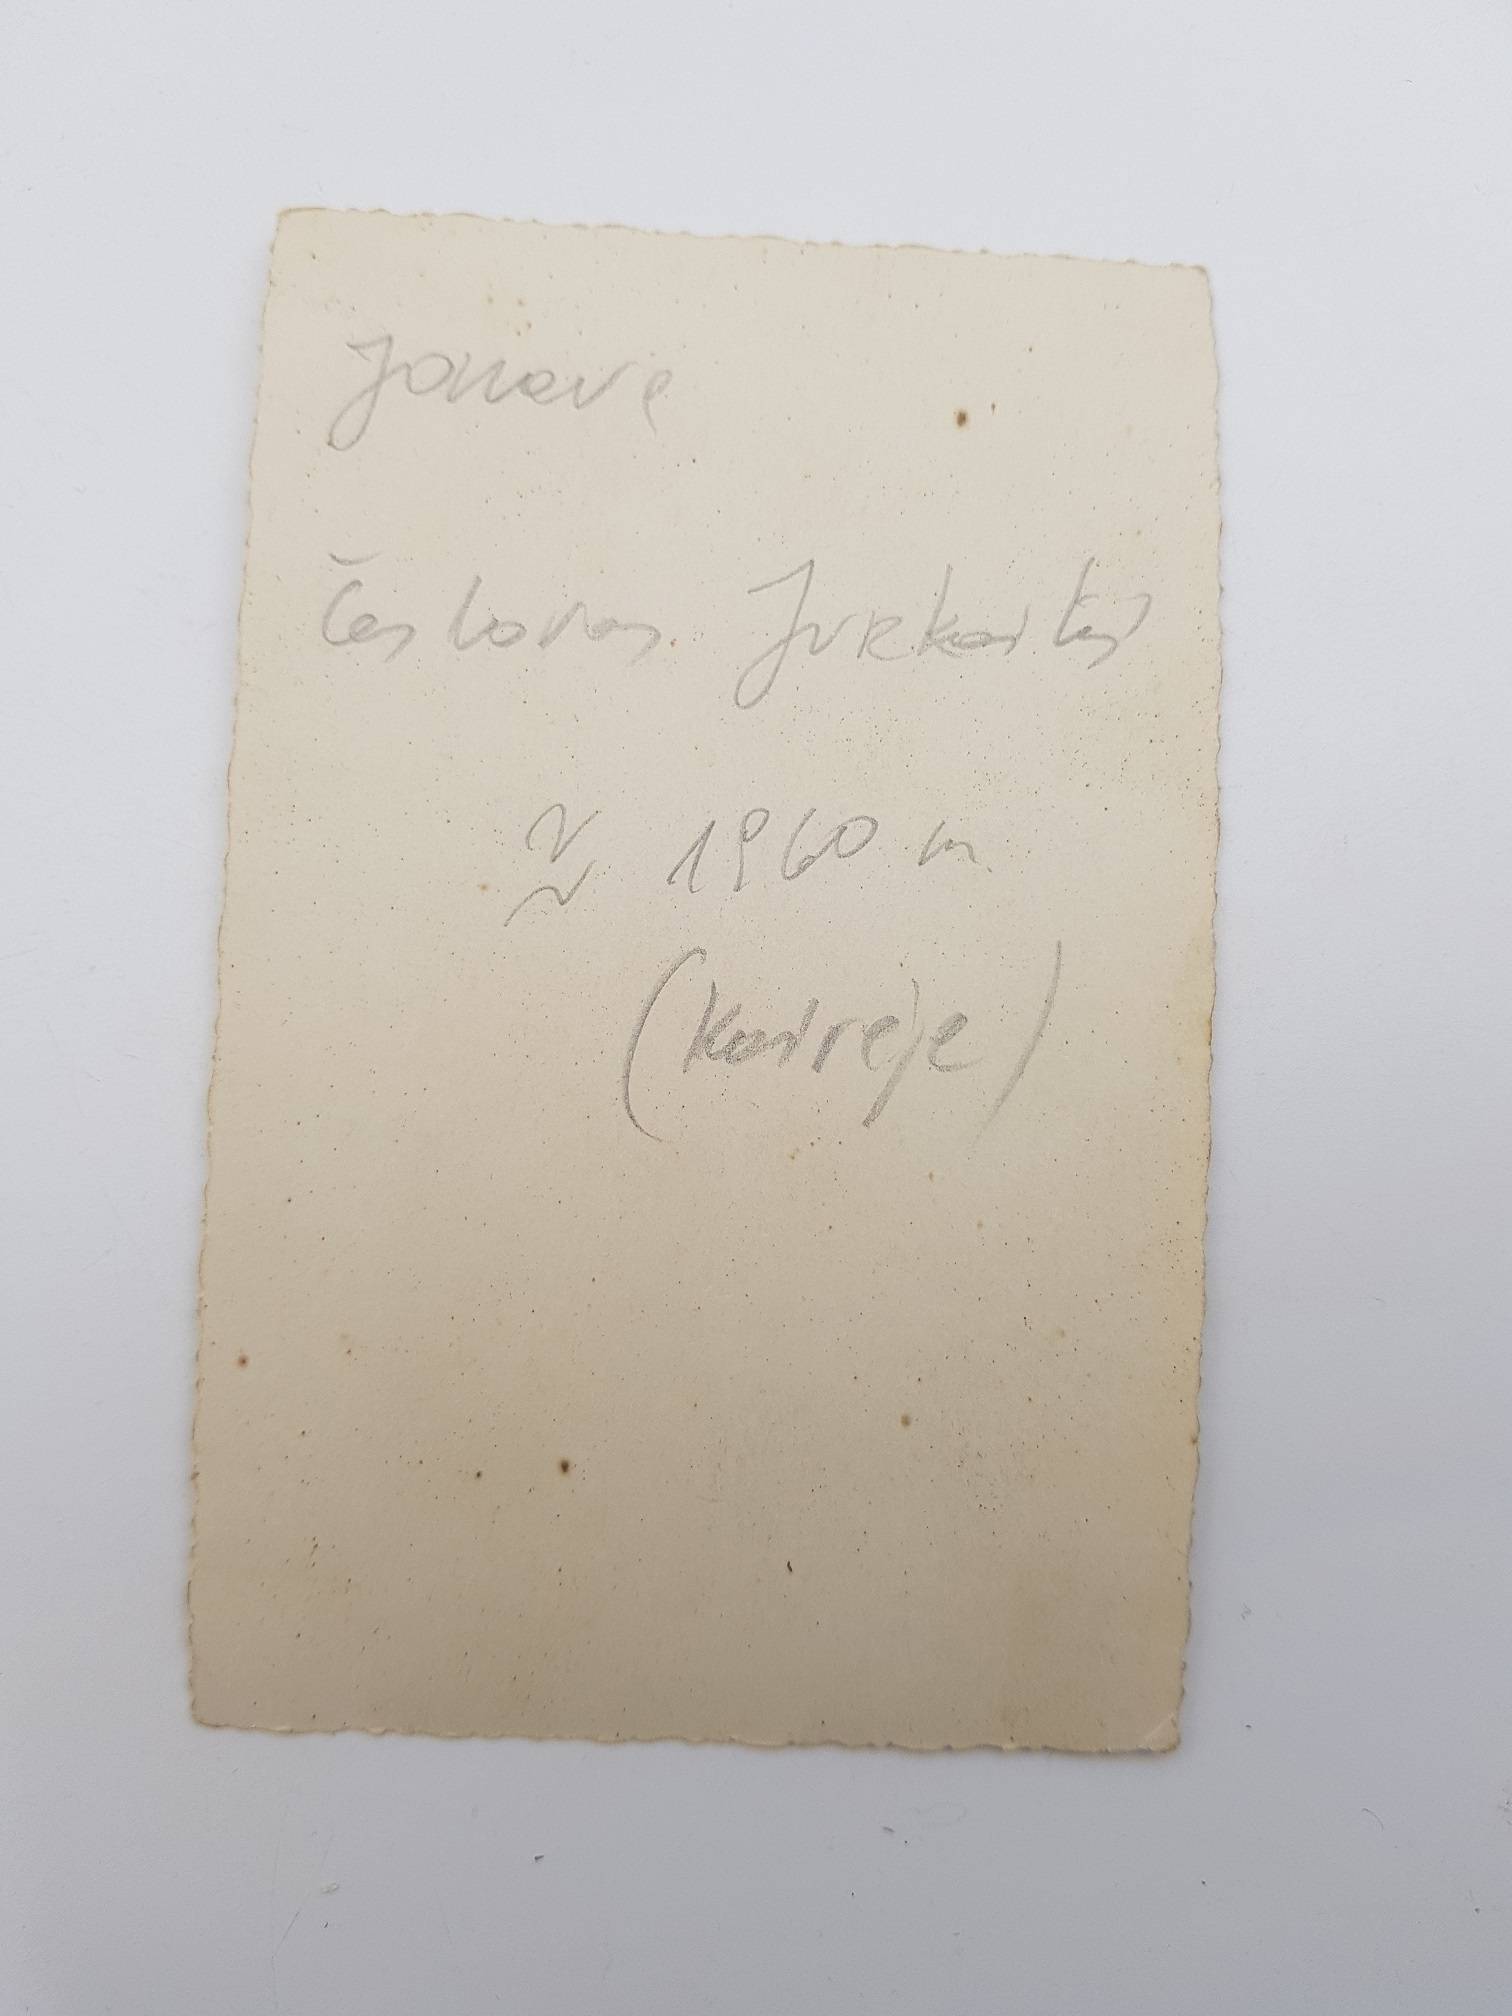 Jonava
Česlovas Jurkaitis
≈ 1960 m
(kairėje)